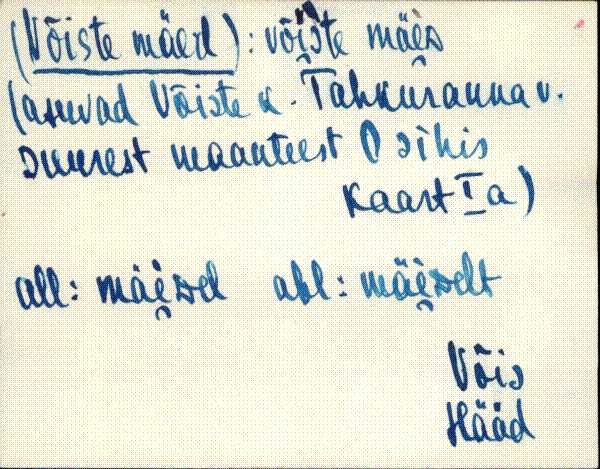 (Võiste mäed): võiste mäe̯s
(asuvad Võiste k. Tahkuranna v.
suurest maanteest O sihis
kaart Ia)
all: mäe̯sel abl: mäe̯selt
Võis
Hääd